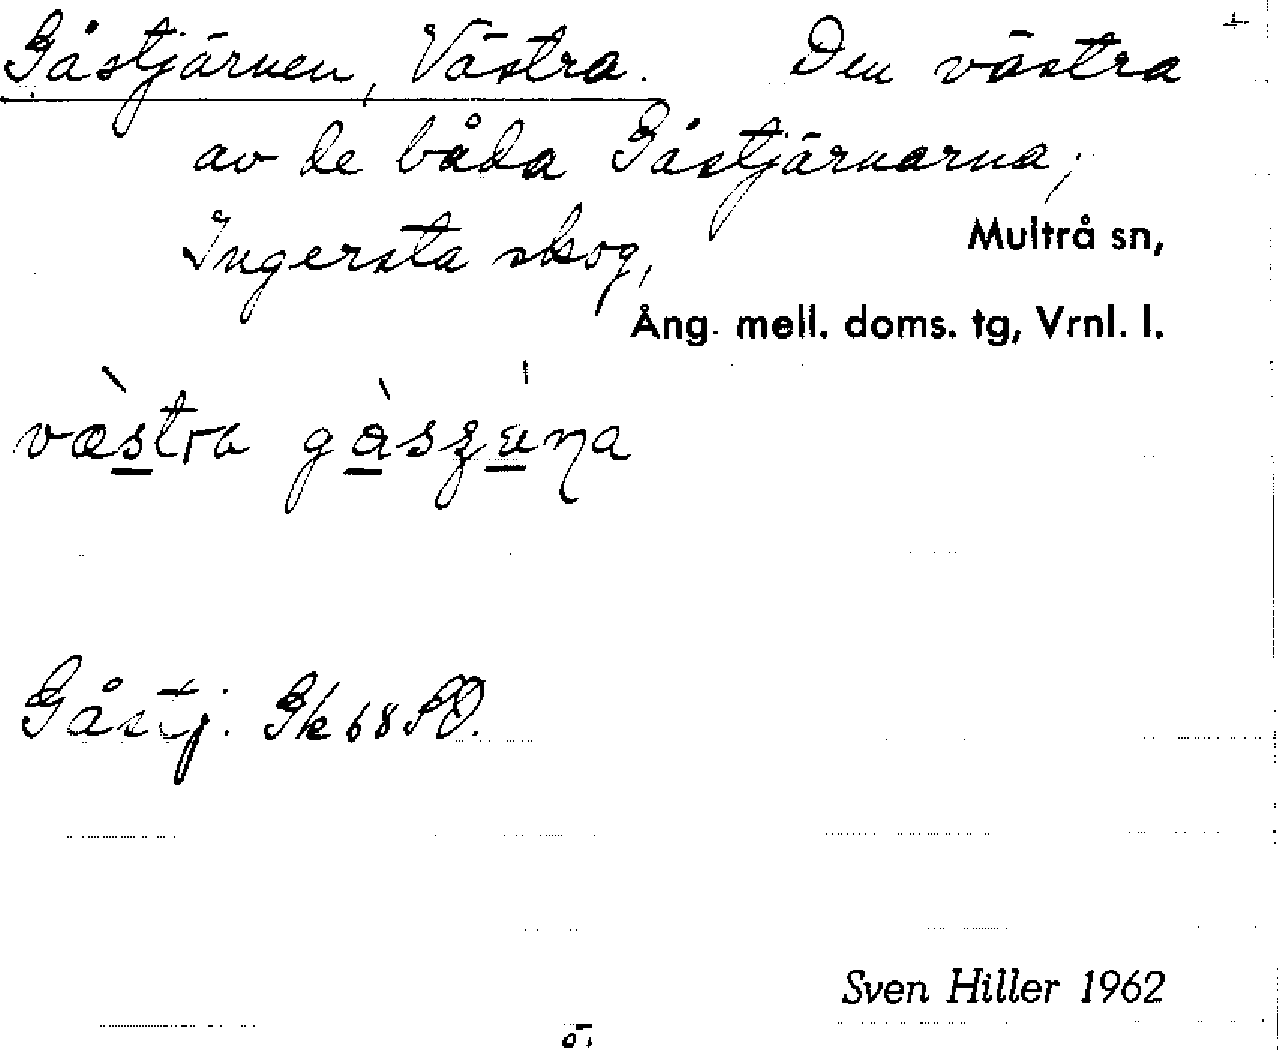 Gåstjärnen, Västra. Den västra
av de båda Gåstjärnarna;
Ingersta skog, Multrå sn,
Ång. mell. doms. tg, Vrnl. l.
Gåstj. Gk 68 SO.
Sven Hiller 1962